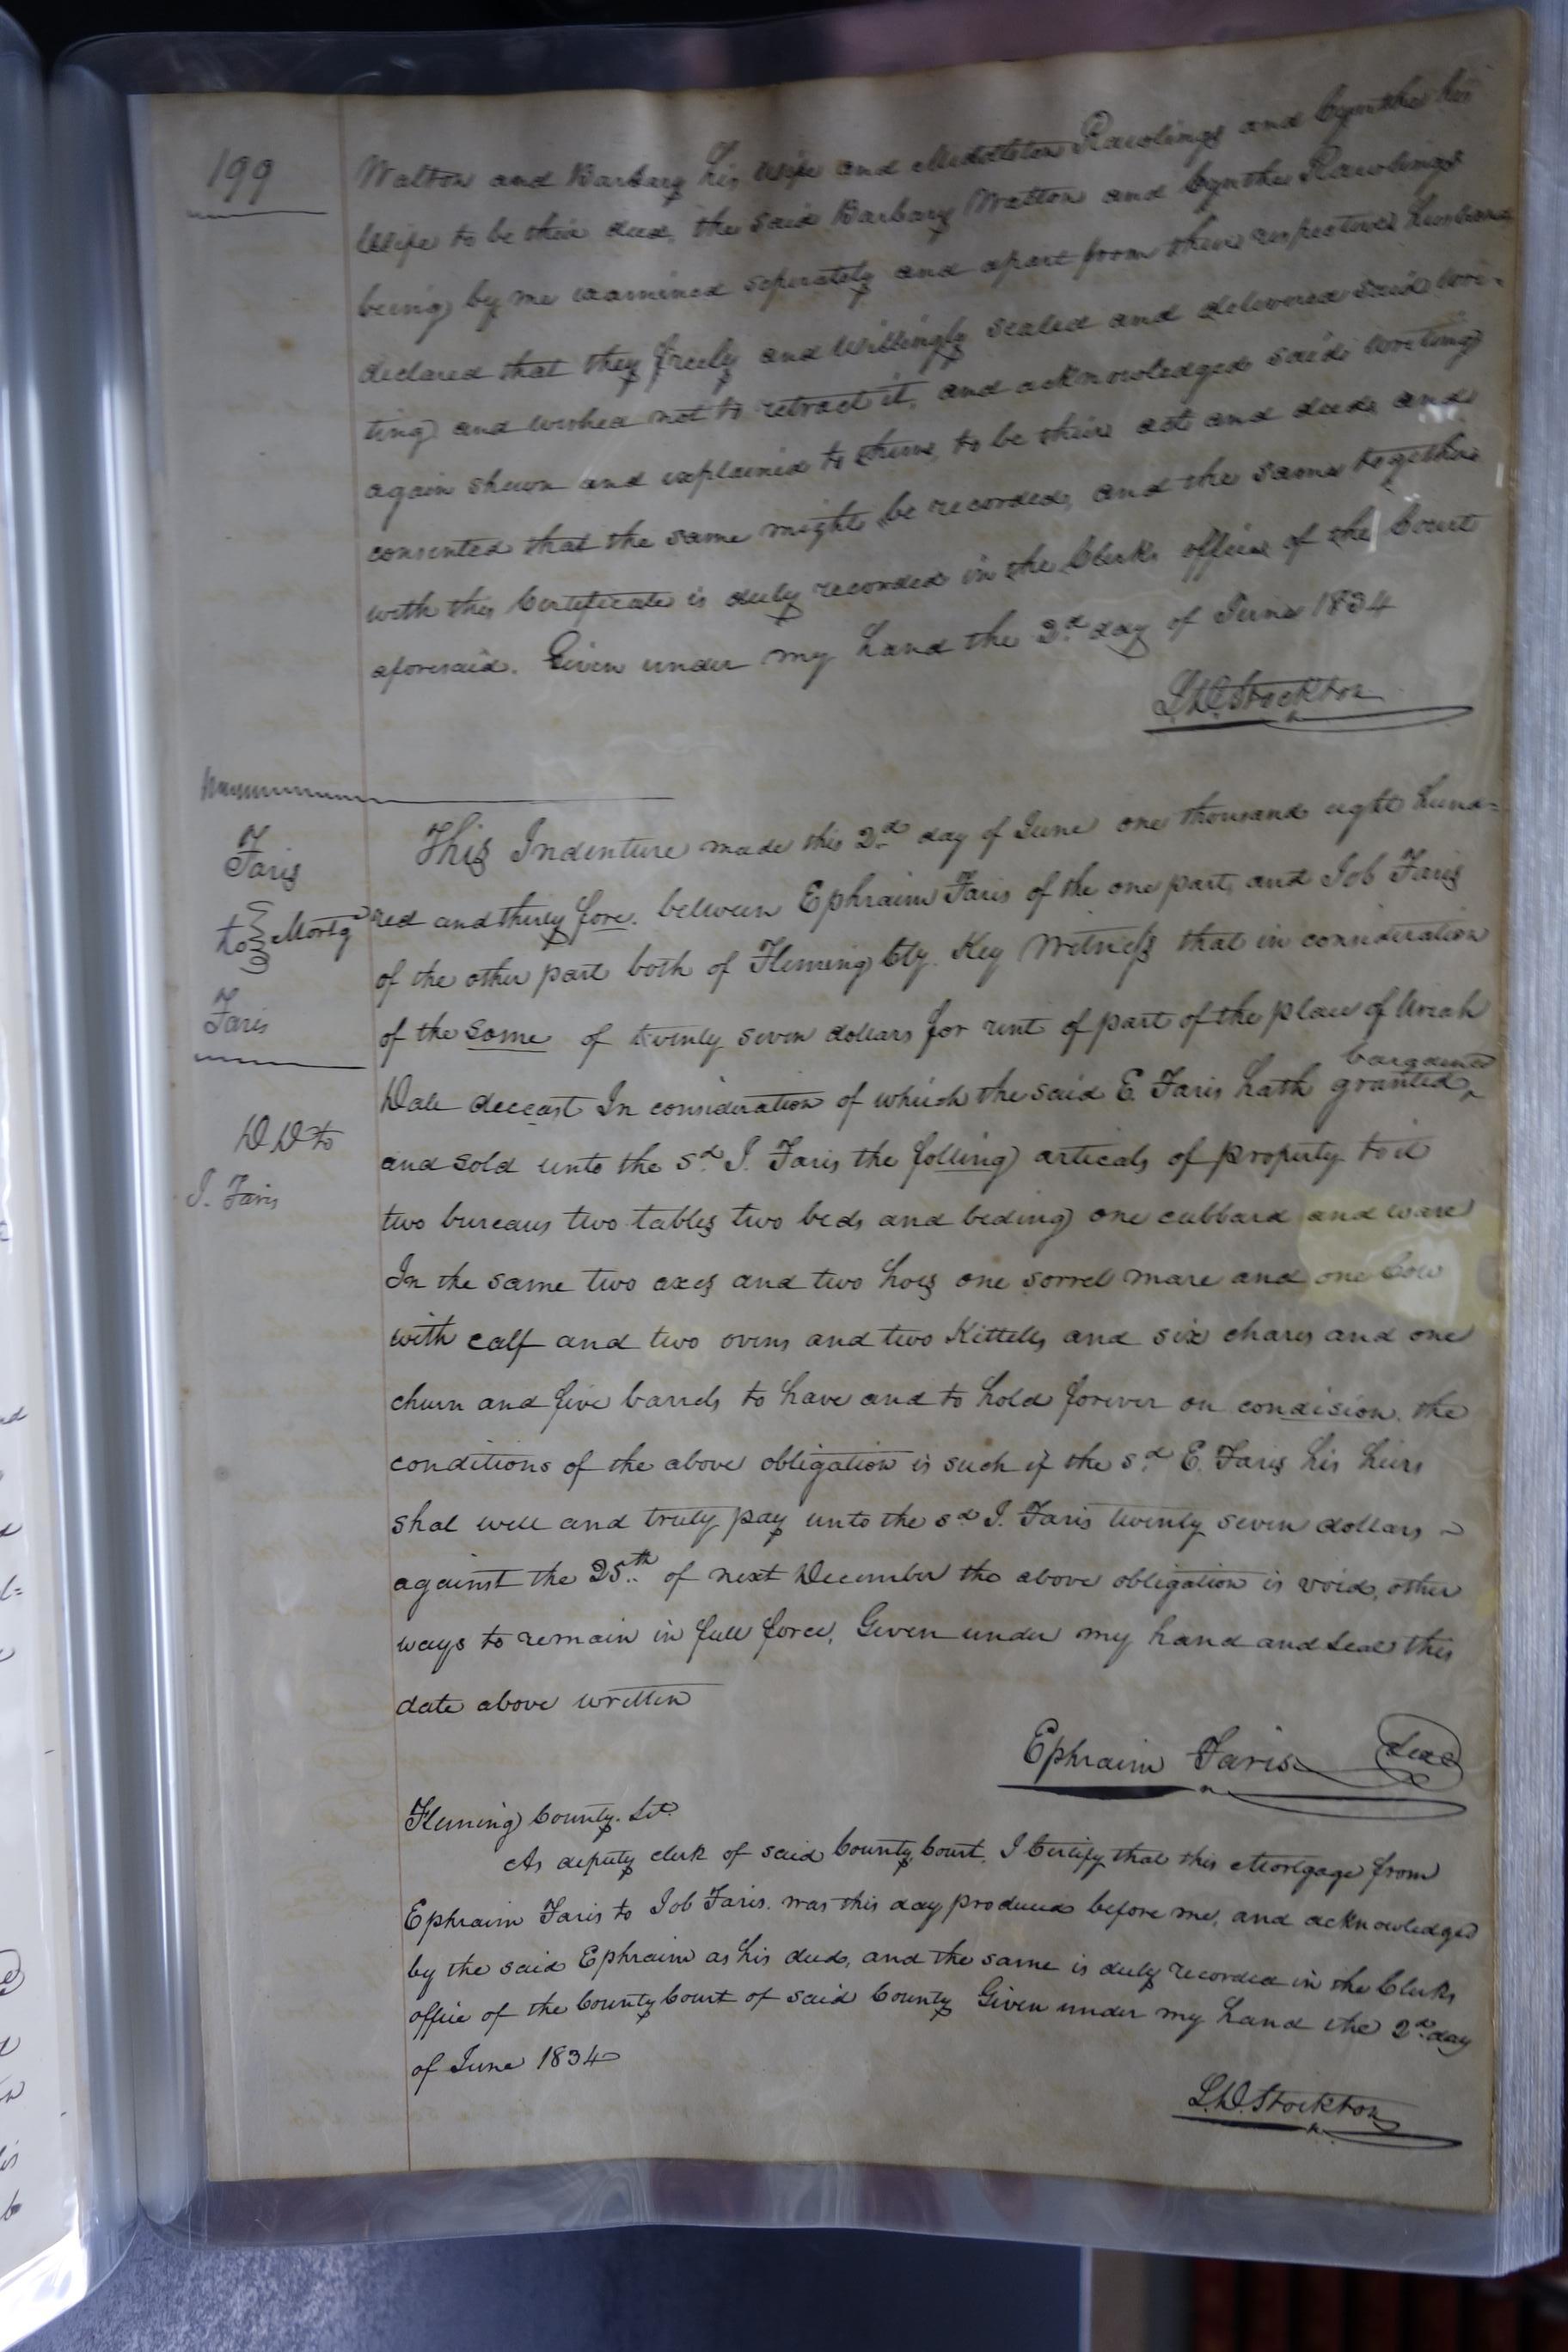 199
Walton and Barbary his wife and Middleton Rawlings and Cynthe his
Wife to be their deed, the said Barbary Walton and Cynthe Rawlings
being by me examined seperately and apart from their respective husbands
declared that they freely and willingly sealed and delivered said wri-
ting and wished not to retract it, and acknowledged said writing
again shewn and explained to them, to be their act and deed, and
consented that the same might be recorded, and the same together
with this Certificate is duly recorded in the Clerks office of the Court
aforesaid. Given under my hand the 2d day of June 1834
L.D. Stockton
Faris
to Mortg
Faris
DD to
J. Faris
This Indenture made this 2d day of June one thousand eight hund=
red and thirty fore. between Ephraim Faris of the one part, and Job Faris
of the other part both of Fleming Cty. Key Witness that in consideration
of the some of twenty seven dollars for rent of part of the place of Uriah
Dale deceast In consideration of which the said E. Faris hath granted, bargained
and sold unto the sd J. Faris the folling articals of property to it
two bureaus two tables two beds and beding one cubbard and ware
In the same two axes and two hoes one sorrel mare and one Cow
with calf and two ovens and two Kittells and six chares and one
churn and five barrels to have and to hold forever on condision. the
conditions of the above obligation is such if the sd E. Faris his heirs
shal well and truly pay unto the sd J. Faris twenty seven dollars
against the 25th of next December the above obligation is void, other
ways to remain in full force, Given under my hand and seal this
date above written
Ephraim Faris Seal
Fleming County. Sct.
As deputy clerk of said County Court, I Certify that this Mortgage from
Ephraim Faris to Job Faris. was this day produced before me, and acknowledged
by the said Ephraim as his deed, and the same is duly recorded in the Clerks
office of the County Court of said County Given under my hand the 2d day
of June 1834
L.D. Stockton